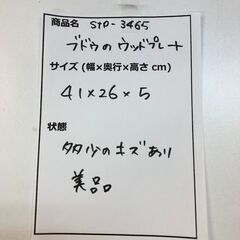 商品名 STD-3465
ブドウのウッドプレート
サイズ (幅×奥行×高さ cm)
41×26×5
状態
多少のキズあり
美品